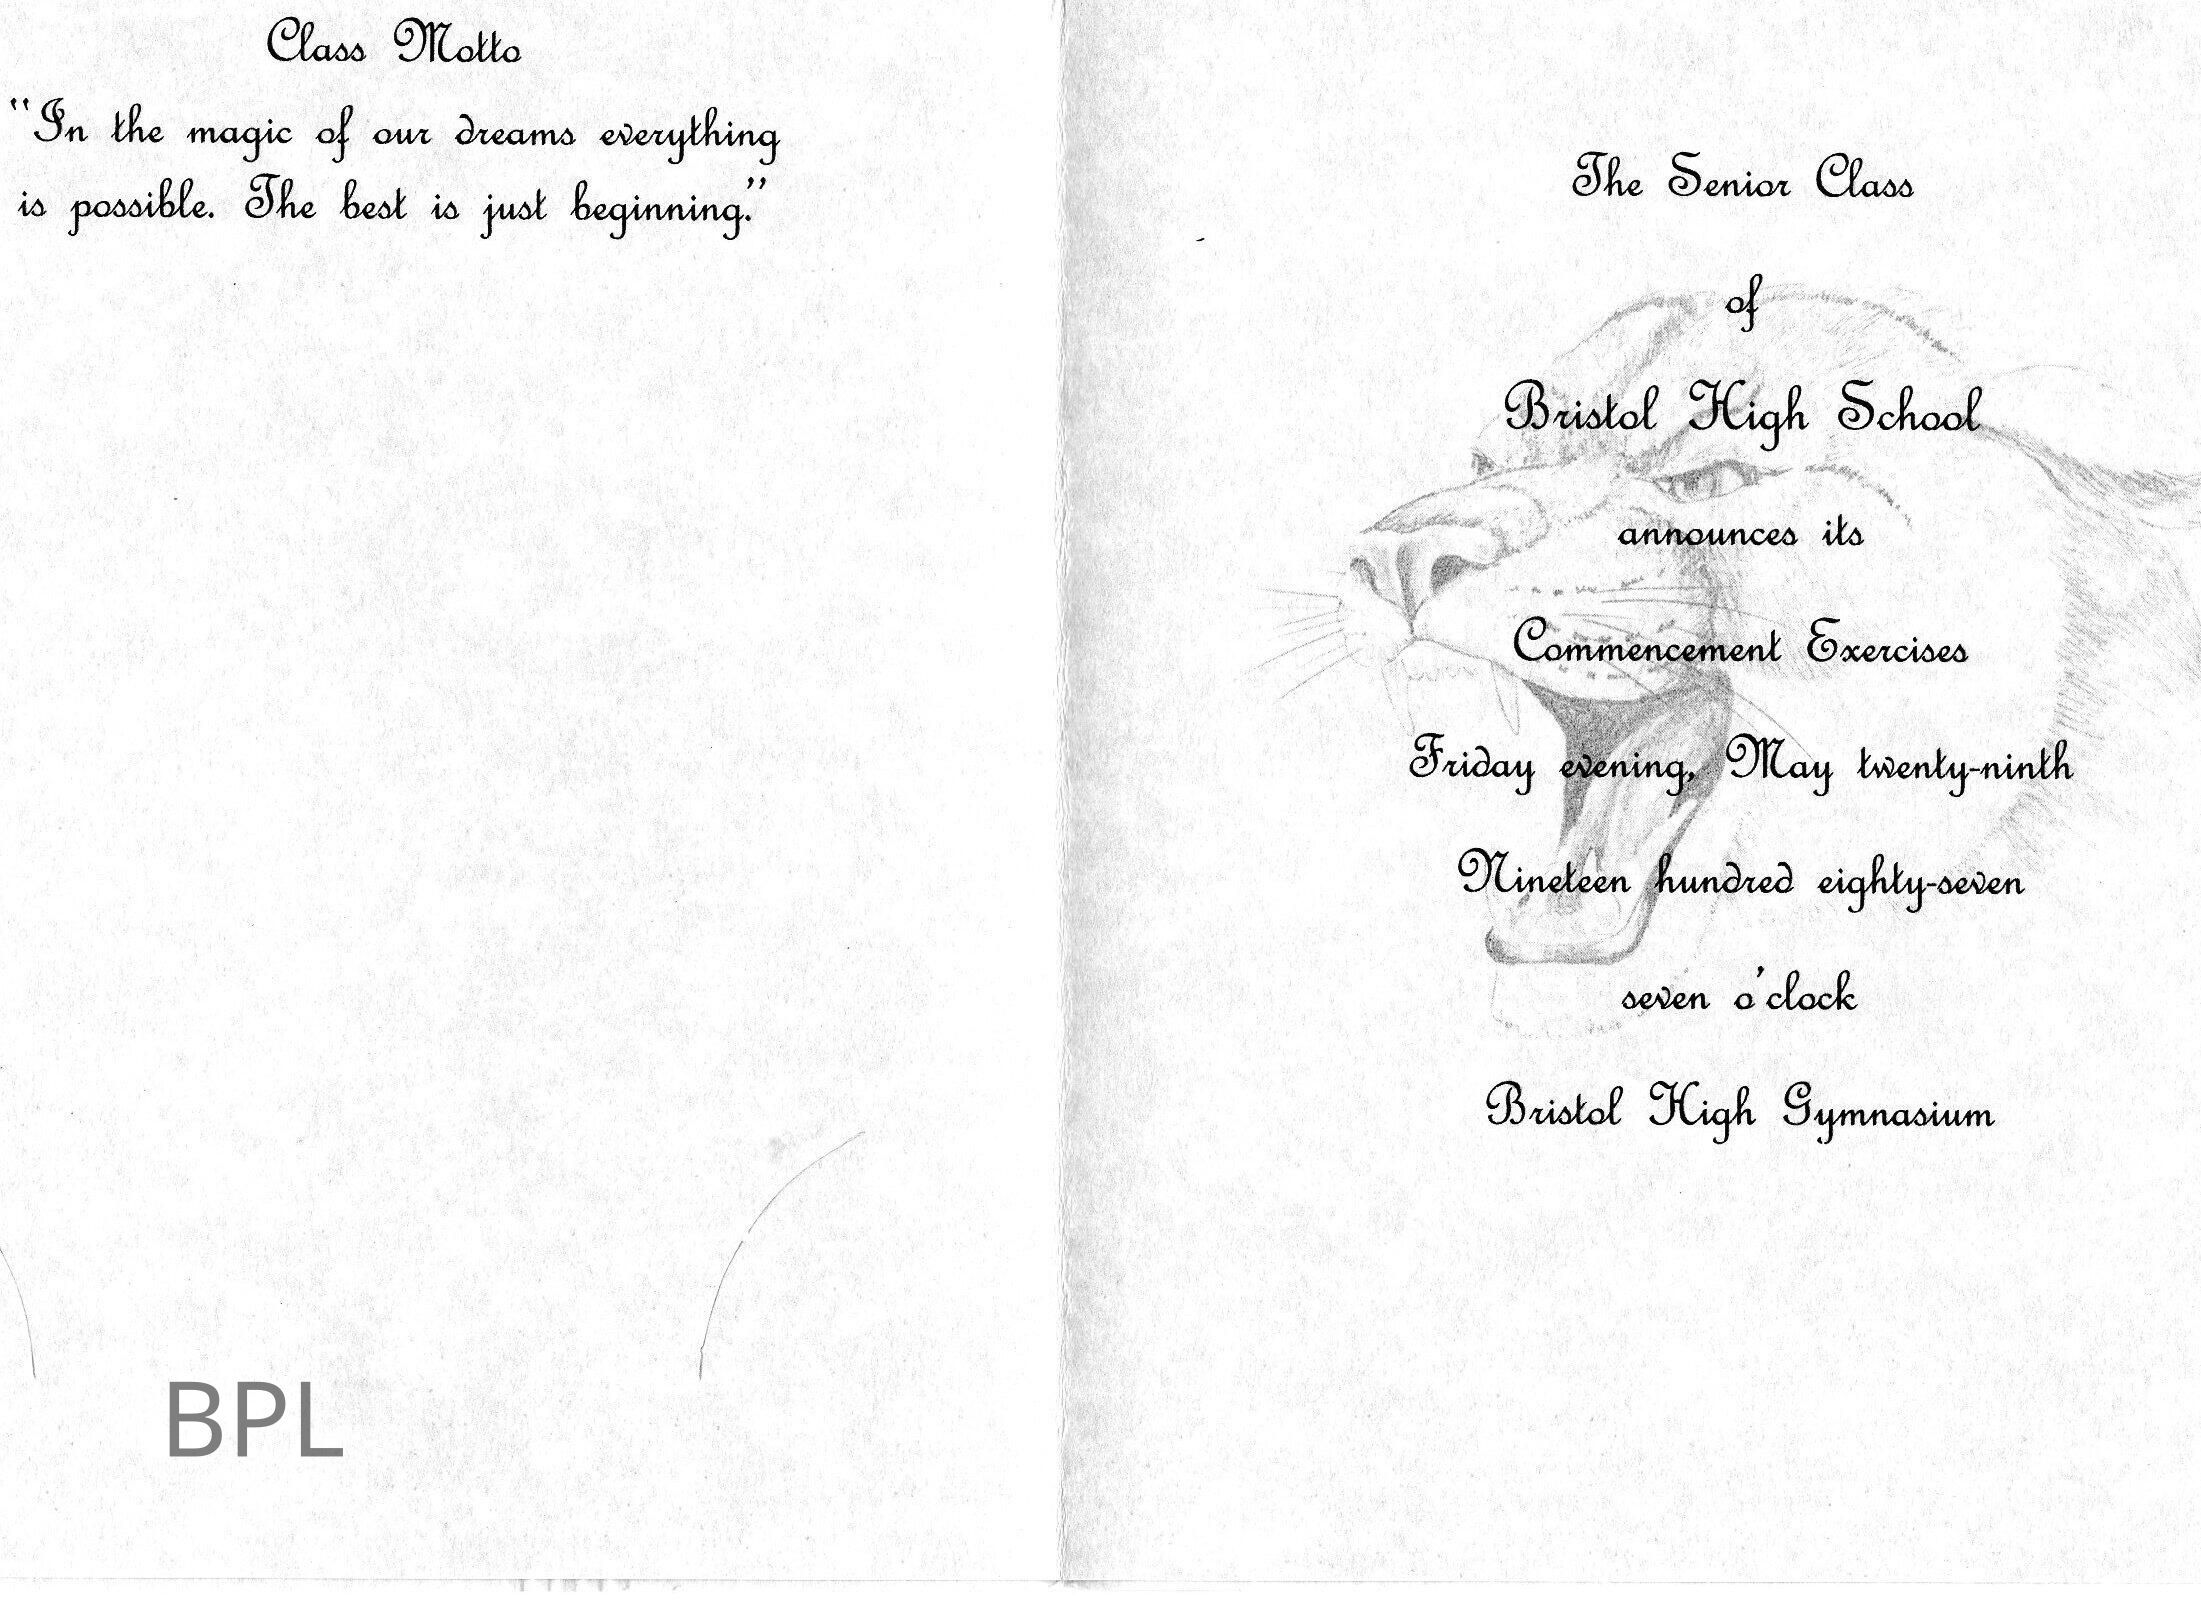 Class Motto
"In the magic of our dreams everything
is possible. The best is just beginning."
BPL
The Senior Class
of
Bristol High School
announces its
Commencement Exercises
Friday evening, May twenty-ninth
Nineteen hundred eighty-seven
seven o'clock
Bristol High Gymnasium